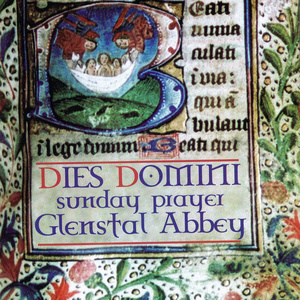 Beati
culati
i uia:
qui ā
bulant
i lege domini Beati qui
DIES DOMINI
sunday prayer
Glenstal Abbey